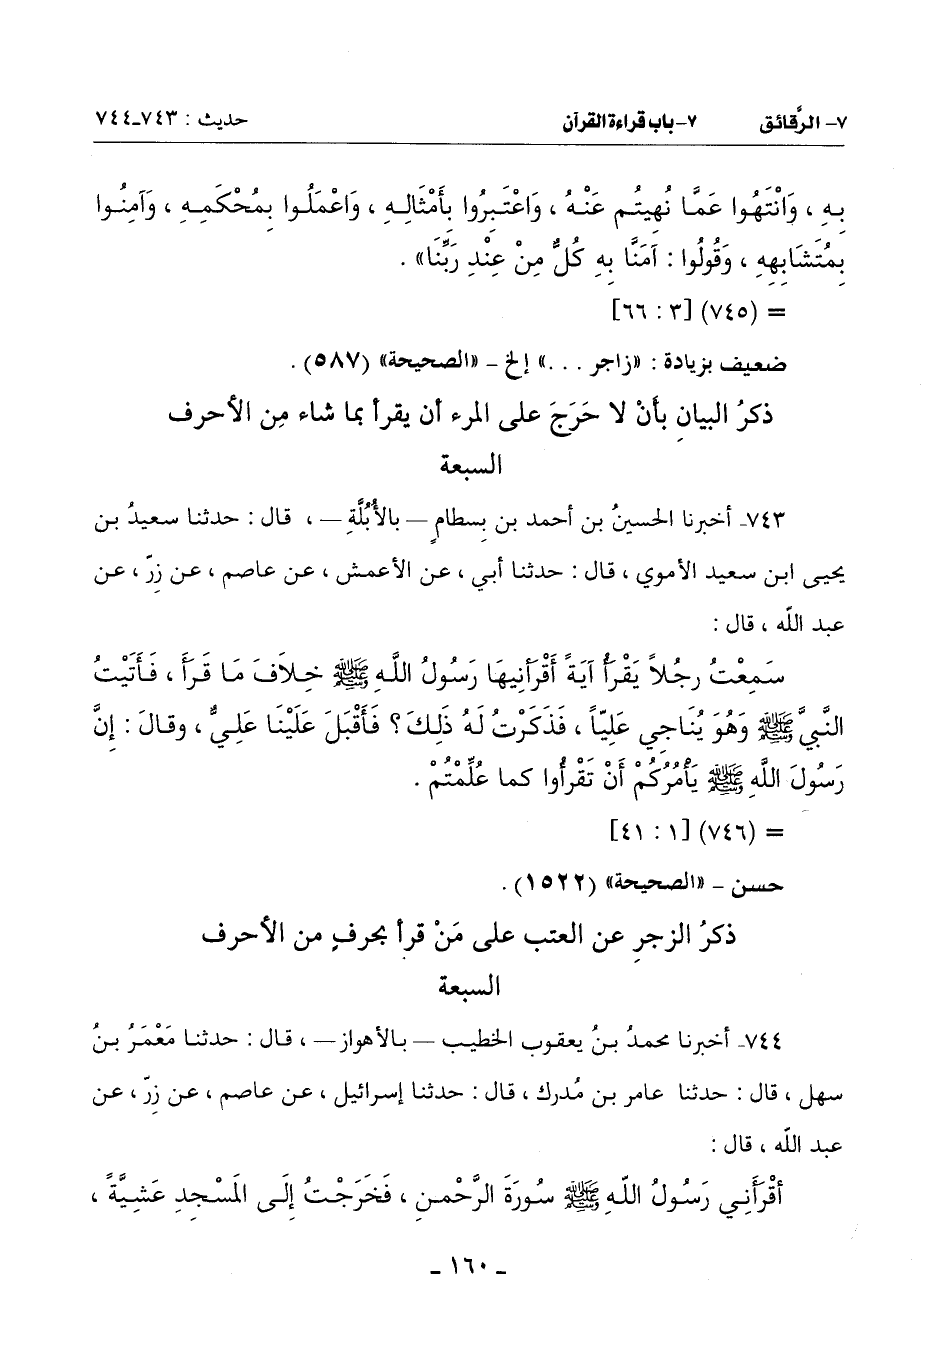 ٧- الرَّقائق ٧-باب قراءة القرآن حديث : ٧٤٣-٧٤٤
بِهِ ، وَانْتَهُوا عَمَّا نُهِيتُم عَنْهُ ، وَاعْتَبِرُوا بِأَمْثَالِهِ ، وَاعْمَلُوا بِمُحْكَمِهِ ، وَآمِنُوا
بِمُتَشَابِهِهِ ، وَقُولُوا : آمَنَّا بِهِ كُلٌّ مِنْ عِنْدِ رَبِّنَا» .
= (٧٤٥) [٣ : ٦٦]
ضعيف بزيادة : «زاجر . . .» إلخ – «الصحيحة» (٥٨٧) .
ذكرُ البيانِ بأَنْ لا حَرَجَ على المرء أن يقرأ بما شاء مِن الأحرف
السبعة
٧٤٣- أخبرنا الحسينُ بن أحمد بن بِسطامٍ – بالأُبُلَّةِ – ، قال : حدثنا سعيدُ بن
يحيى ابن سعيد الأموي ، قال : حدثنا أبي ، عن الأعمش ، عن عاصم ، عن زِرّ ، عن
عبد اللّه ، قال :
سَمِعْتُ رجُلاً يَقْرَأُ آيَةً أَقْرَأنِيهَا رَسُولُ اللَّهِ ﷺ خِلافَ مَا قَرَأَ ، فَأَتَيْتُ
النَّبِيَّ ﷺ وَهُوَ يُنَاجِي عَلِيّاً ، فَذَكَرْتُ لَهُ ذَلِكَ ؟ فَأَقْبَلَ عَلَيْنَا عَلِيٌّ ، وقالَ : إِنَّ
رَسُولَ اللَّهِ ﷺ يَأْمُرُكُمْ أَنْ تَقْرأُوا كما عُلِّمْتُمْ .
= (٧٤٦) [١ : ٤١]
حسن – «الصحيحة» (١٥٢٢) .
ذكرُ الزجرِ عن العتب على مَنْ قرأ بحرفٍ من الأحرف
السبعة
٧٤٤- أخبرنا محمدُ بنُ يعقوب الخطيب – بالأهواز– ، قال : حدثنا مَعْمَرُ بنُ
سهل ، قال : حدثنا عامر بن مُدرك ، قال : حدثنا إسرائيل ، عن عاصم ، عن زِرّ ، عن
عبد اللّه ، قال :
أَقْرَأَنِي رَسُولُ اللّهِ ﷺ سُورَةَ الرَّحْمنِ ، فَخَرَجْتُ إِلَى المَسْجِدِ عَشِيَّةً ،
– ١٦٠ –